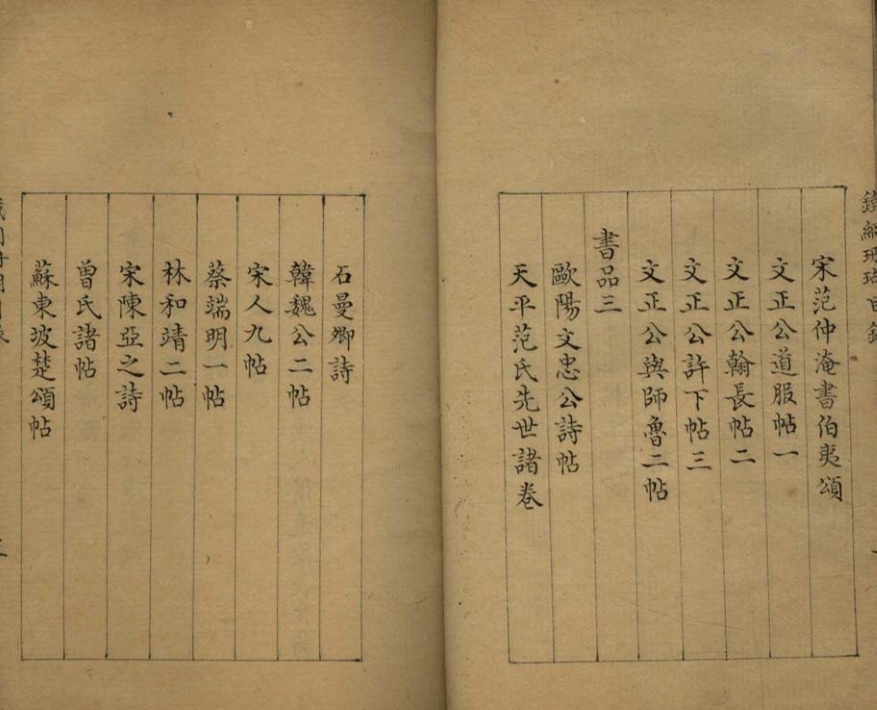 鐵網珊瑚目錄
宋范仲淹書伯夷頌
文正公道服帖一
文正公翰長帖二
文正公許下帖三
文正公與師魯二帖
書品三
歐陽文忠公詩帖
天平范氏先世諸卷
石曼卿詩
韓魏公二帖
宋人九帖
蔡端明一帖
林和靖二帖
宋陳亞之詩
曾氏諸帖
蘇東坡楚頌帖